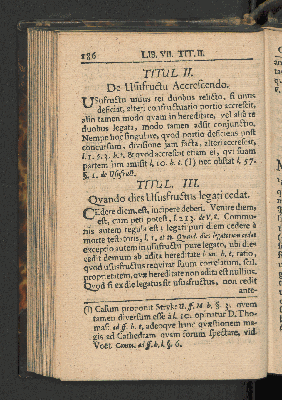 186 LIB. VII. TIT. II.
TITUL. II.
De Usufructu Accrescendo.
Usufructu unius rei duobus relicto, si unus
deficiat, alteri confructuario portio accrescit,
alio tamen modo quam in hereditate, vel aliàs re
duobus legata, modo tamen adsit conjunctio.
Nempe hoc singulare, quod portio deficiens post
concursum, divisione jam facta, alteri accrescit,
l. 1. §. 3. h. t. & quod accrescat etiam ei, qui suam
partem jam amisit l. 10. h. t. (1) nec obstat l. 57.
§. 1. de Usufruct.
TITUL. III.
Quando dies Ususfructus legati cedat.
Cedere diem est, incipere deberi. Venire diem,
est, eam peti posse, l. 213. de V. S. Commu-
nis autem regula est: legati puri diem cedere à
morte testatoris, l. 5. ff. Quand. dies legatorum cedat
excepto autem in usufructu pure legato, ubi dies
cedit demum ab adita hereditate l. un. h. t. ratio,
quod ususfructus requirat suum correlatum, scil.
proprietatem, quæ hereditate non adita est nullius.
Quod si ex die legatus sit ususfructus, non cedit
ante-
(1) Casum proponit Stryk. U. ff. M. h. §. 3. quem
tamen diversum esse à l. 10. opinatur D. Tho-
mas. ad ff. h. t. adeoque hanc quæstionem ma-
gis ad Cathedram quam forum spectare, vid.
Voet. Comm. ad ff. h. t. §. 6.